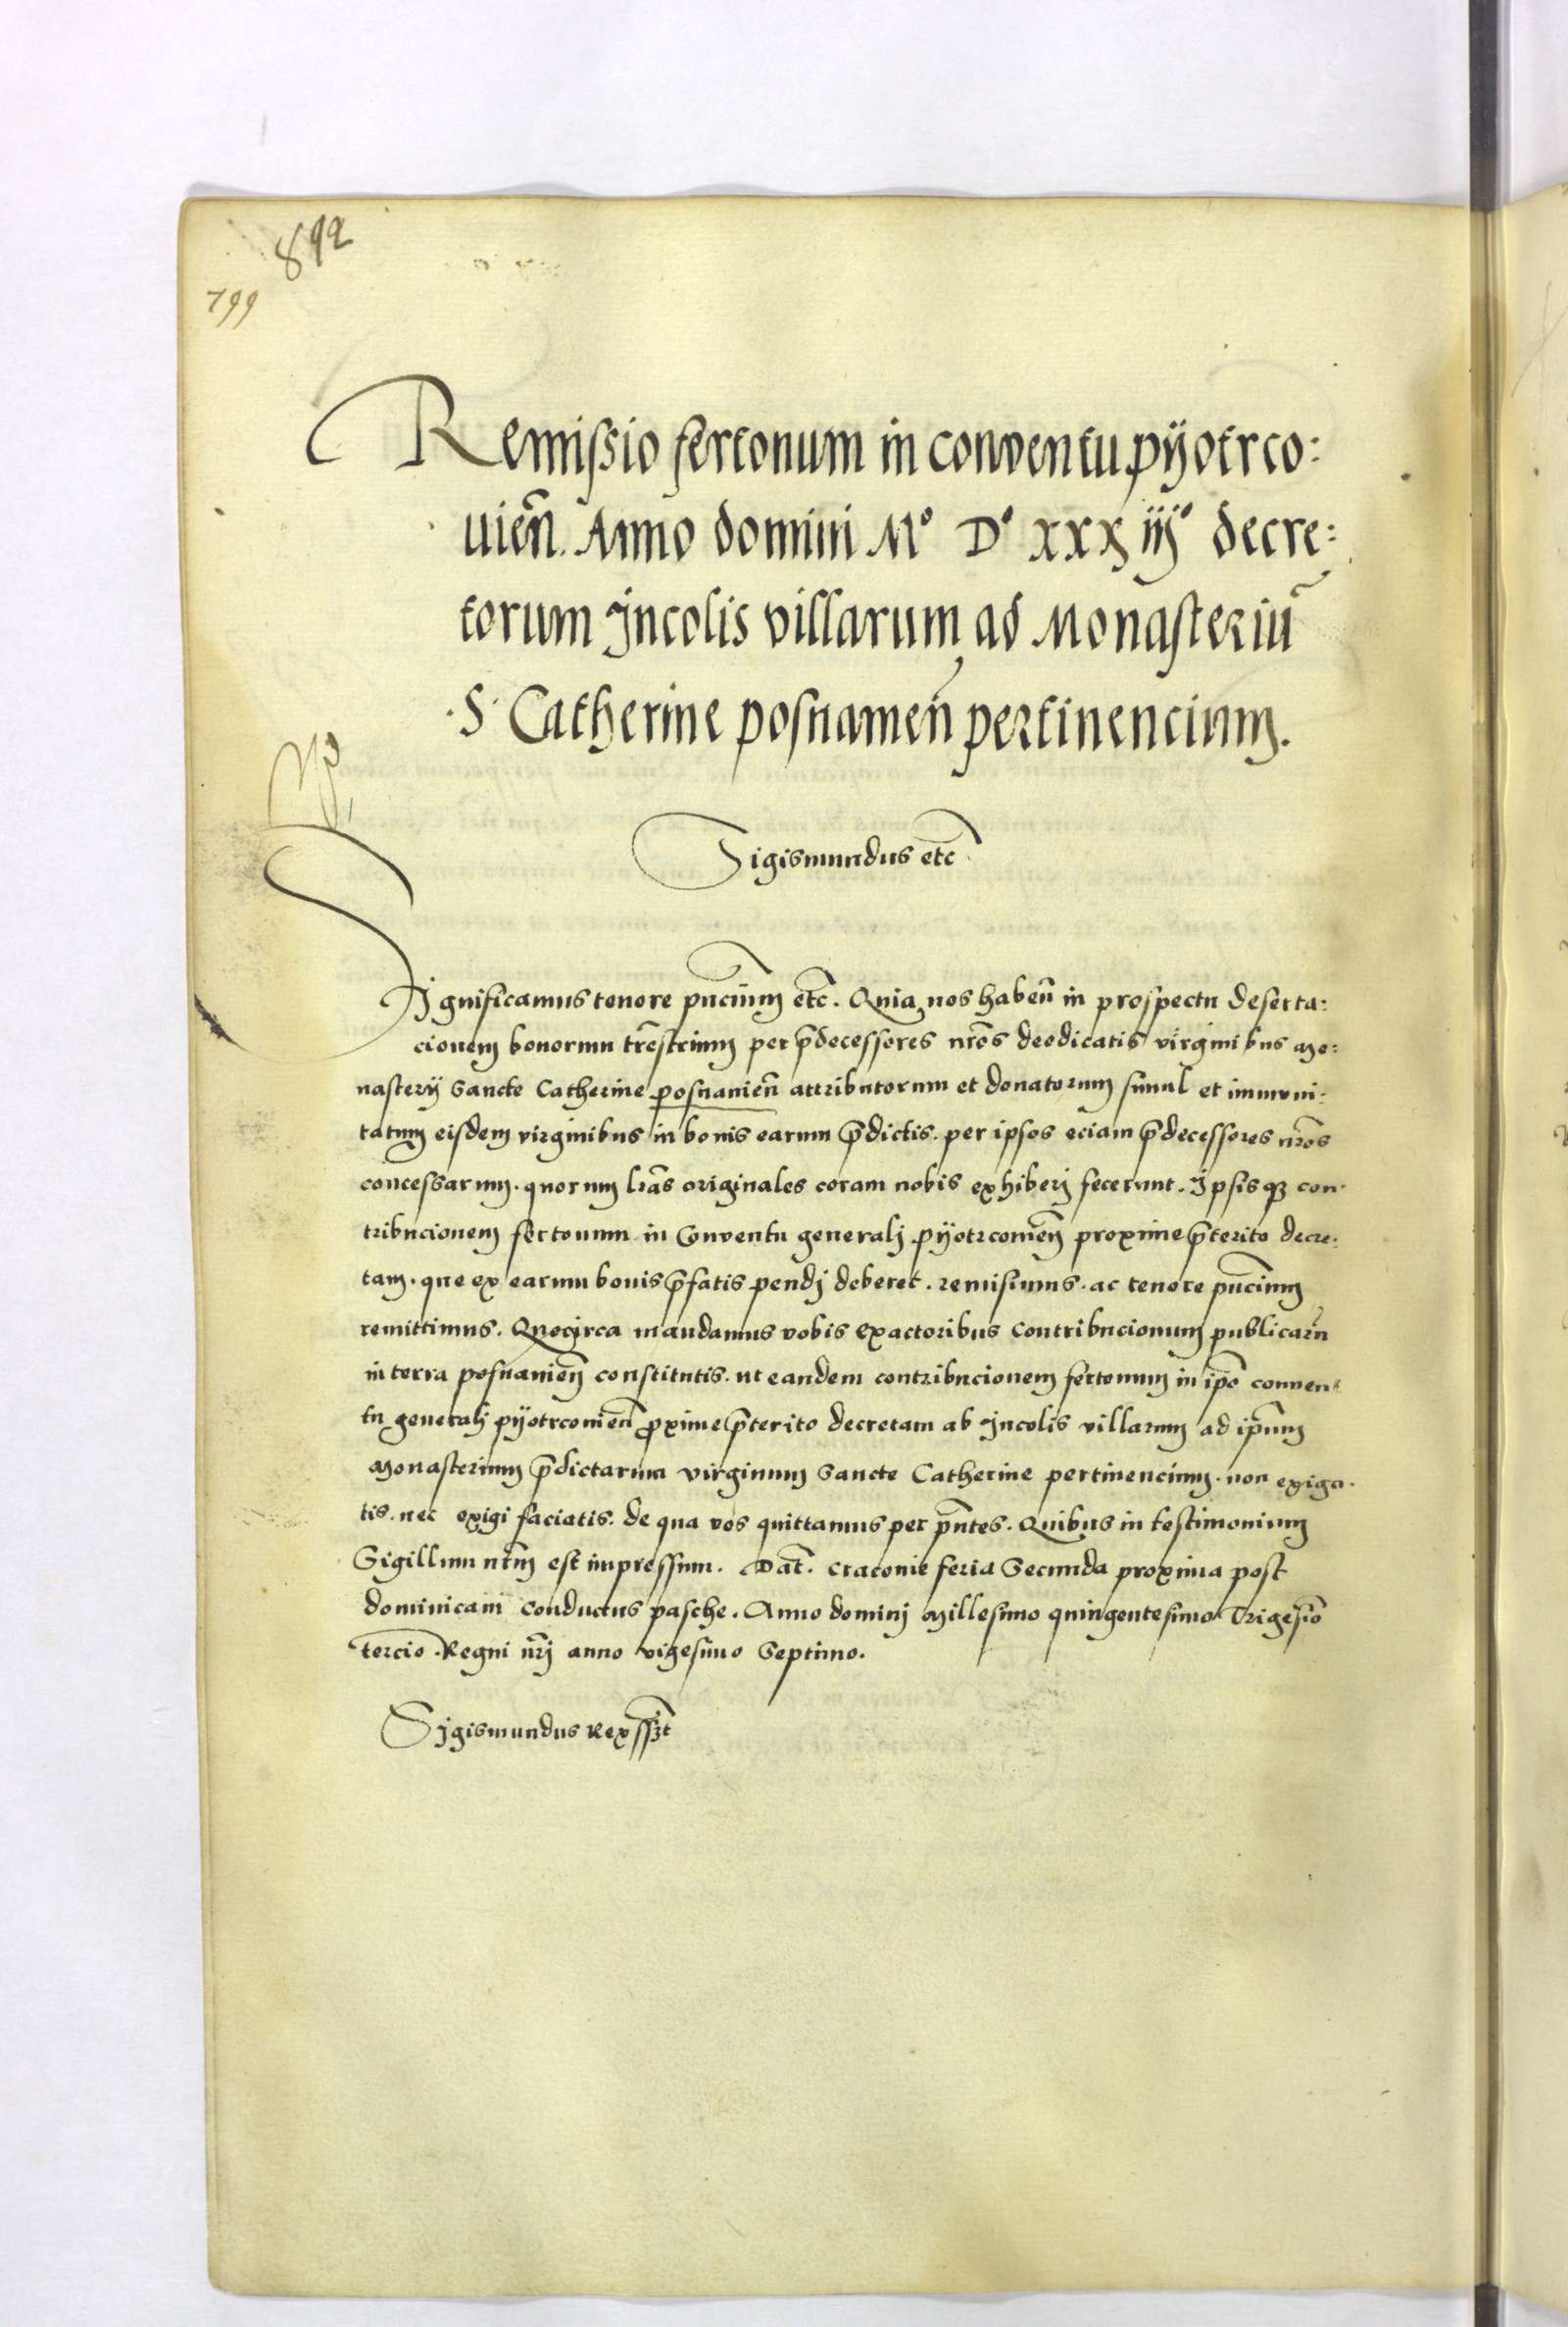 892
799
Remissio fertonum in conventu pyotrco:
uien̄. Anno domini Mº Dº xxxiijº decre:
torum Jncolis villarum ad Monasteriū
S. Catherine posnanien̄ pertinencium.
Sigismundus etc̄
Significamus tenore pn̄cium etc̄. Quia nos haben̄ in prospectu deserta:
cionem bonorum tr̄estrium per p̄decessores nr̄os deodicatis virginibus mo:
nasterij Sancte Catherine posnanien̄ attributorum et donatorum simul et immuni:
tatum eisdem virginibus in bonis earum p̄dictis. per ipsos eciam p̄decessores nr̄os
concessarum. quorum lr̄as originales coram nobis exhiberj fecerunt. Jpsis qꝫ con:
tribucionem fertonum in Conventu generalj pyotrcouien̄ proxime p̄terito decre:
tam. que ex earum bonis p̄fatis pendj deberet. remisimus. ac tenore pn̄cium
remittimus. Quocirca mandamus vobis Exactoribus Contribucionum publicarū
in terra posnanien̄ constitutis. ut eandem contribucionem fertonum in ip̄o conuen:
tu generalj pyotrcouien̄ ꝓxime p̄terito decretam ab Jncolis villarum ad ip̄um
Monasterium p̄dictarum virginum Sancte Catherine pertinencium. non exiga:
tis. nec exigi faciatis. de qua vos quittamus per pn̄tes. Quibus in testimonium
Sigillum nr̄m est impressum. Dat̄. Cracouie feria Secunda proxima post
dominicam Conductus pasche. Anno dominj Millesimo quingentesimo Trigesīo
tercio. Regni nr̄j anno vigesimo Septimo.
Sigismundus Rex ssꝫt